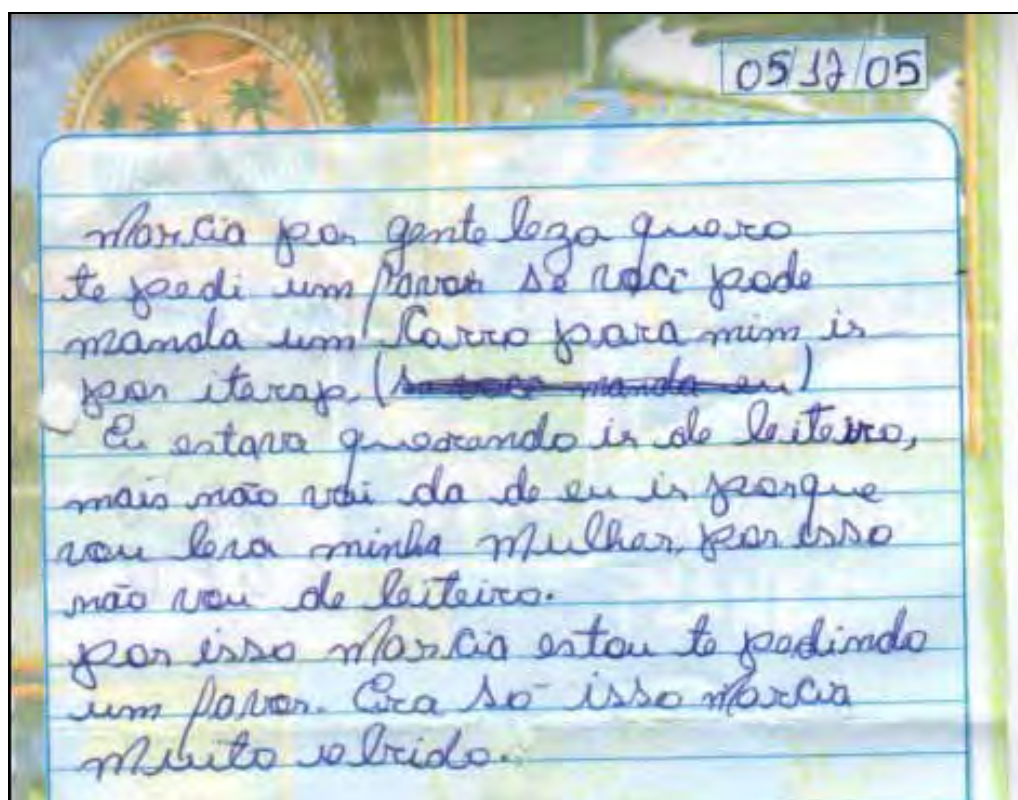 05/12/05
Marcia por gente leza quero
te pedi um favor se você pode
manda um carro para mim ir
por iterap. (se voce manda eu)
Eu estava querendo ir de leiteiro,
mais não vai da de eu ir porque
vou leva minha mulher, por isso
não vou de leiteiro.
por isso Marcia estou te pedindo
um favor. Era só isso Marcia
muito obrido.